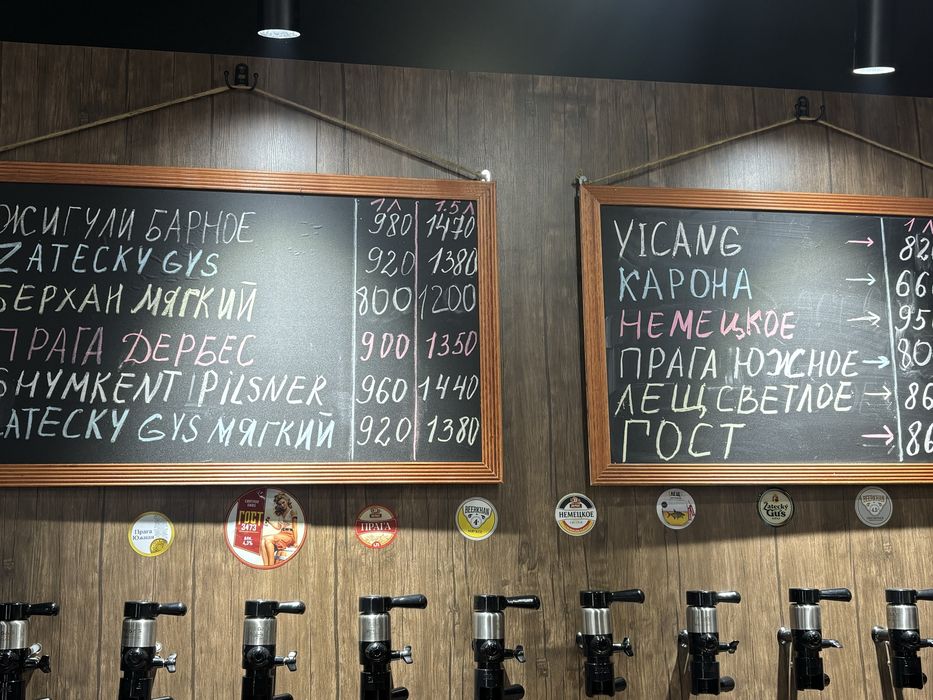 1 Л 1.5 Л
ЖИГУЛИ БАРНОЕ 980 1470
ZATECKY GYS 920 1380
БЕРХАН МЯГКИЙ 800 1200
ПРАГА ДЕРБЕС 900 1350
SHYMKENT PILSNER 960 1440
ZATECKY GYS МЯГКИЙ 920 1380
1 Л
YICANG → 82
КАРОНА → 66
НЕМЕЦКОЕ → 95
ПРАГА ЮЖНОЕ → 80
ЛЕЩ СВЕТЛОЕ → 86
ГОСТ → 86
Прага
Южная
ГОСТ
3473
4,3%
ПРАГА
BEERKHAN
НЕМЕЦКОЕ
ЛЕЩ
Zatecky
Gus
BEERKHAN